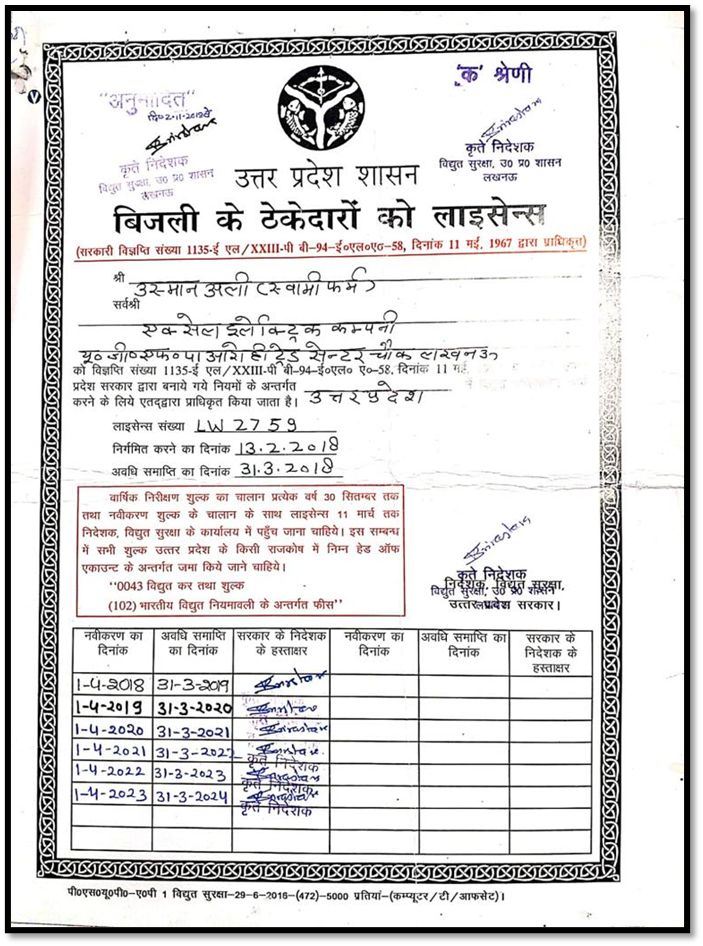 'क' श्रेणी
"अनुमोदित"
कृते निदेशक
विद्युत सुरक्षा, उ0 प्र0 शासन
लखनऊ
कृते निदेशक
विद्युत सुरक्षा, उ0 प्र0 शासन
लखनऊ
उत्तर प्रदेश शासन
बिजली के ठेकेदारों को लाइसेन्स
(सरकारी विज्ञप्ति संख्या 1135-ई एल/XXIII-पी बी-94-ई०एल०ए०-58, दिनांक 11 मई, 1967 द्वारा प्राधिकृत)
श्री उस्मान अली (स्वामी फर्म)
सर्वश्री
एक्सेल इलेक्ट्रिक कम्पनी
यू० जी० एफ० पा आरोही ट्रेड सेन्टर चौक लखनऊ
को विज्ञप्ति संख्या 1135-ई एल/XXIII-पी बी-94-ई०एल० ए०-58, दिनांक 11 मई,
प्रदेश सरकार द्वारा बनाये गये नियमों के अन्तर्गत
करने के लिये एतद्द्वारा प्राधिकृत किया जाता है। उत्तर प्रदेश
लाइसेन्स संख्या LW 2759
निर्गमित करने का दिनांक 13.2.2018
अवधि समाप्ति का दिनांक 31.3.2018
वार्षिक निरीक्षण शुल्क का चालान प्रत्येक वर्ष 30 सितम्बर तक
तथा नवीकरण शुल्क के चालान के साथ लाइसेन्स 11 मार्च तक
निदेशक, विद्युत सुरक्षा के कार्यालय में पहुँच जाना चाहिये। इस सम्बन्ध
में सभी शुल्क उत्तर प्रदेश के किसी राजकोष में निम्न हेड ऑफ
एकाउन्ट के अन्तर्गत जमा किये जाने चाहिये।
"0043 विद्युत कर तथा शुल्क
(102) भारतीय विद्युत नियमावली के अन्तर्गत फीस"
कृते निदेशक
निदेशक, विद्युत सुरक्षा,
विद्युत सुरक्षा, उ0 प्र0 शासन
उत्तर प्रदेश सरकार।
नवीकरण का दिनांक अवधि समाप्ति का दिनांक सरकार के निदेशक के हस्ताक्षर नवीकरण का दिनांक अवधि समाप्ति का दिनांक सरकार के निदेशक के हस्ताक्षर
1-4-2018 31-3-2019
1-4-2019 31-3-2020
1-4-2020 31-3-2021
1-4-2021 31-3-2022
कृते निदेशक
1-4-2022 31-3-2023
कृते निदेशक
1-4-2023 31-3-2024
कृते निदेशक
पी०एस०यू०पी०-ए०पी 1 विद्युत सुरक्षा-29-6-2016-(472)-5000 प्रतियां-(कम्प्यूटर/टी/आफसेट)।